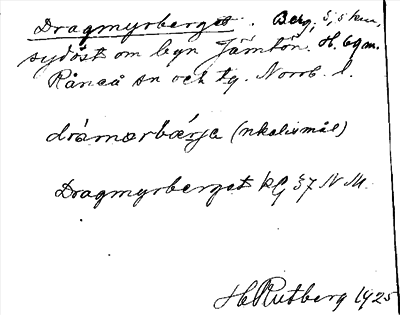 Dragmyrberget. Berg, 5,5 km,
sydöst om byn Jämtön. H. bgm.
Råneå sn och tg. Norrb. l.
dråmarbärja (nkalixmål)
Dragmyrberget kG 37 N M.
H Rutberg 1925